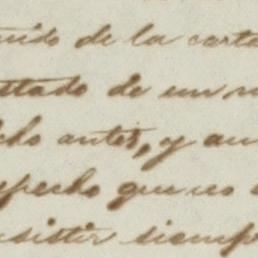 nido de la carta
stado de un
cho antes, y aun
specho que no
sistir siemp